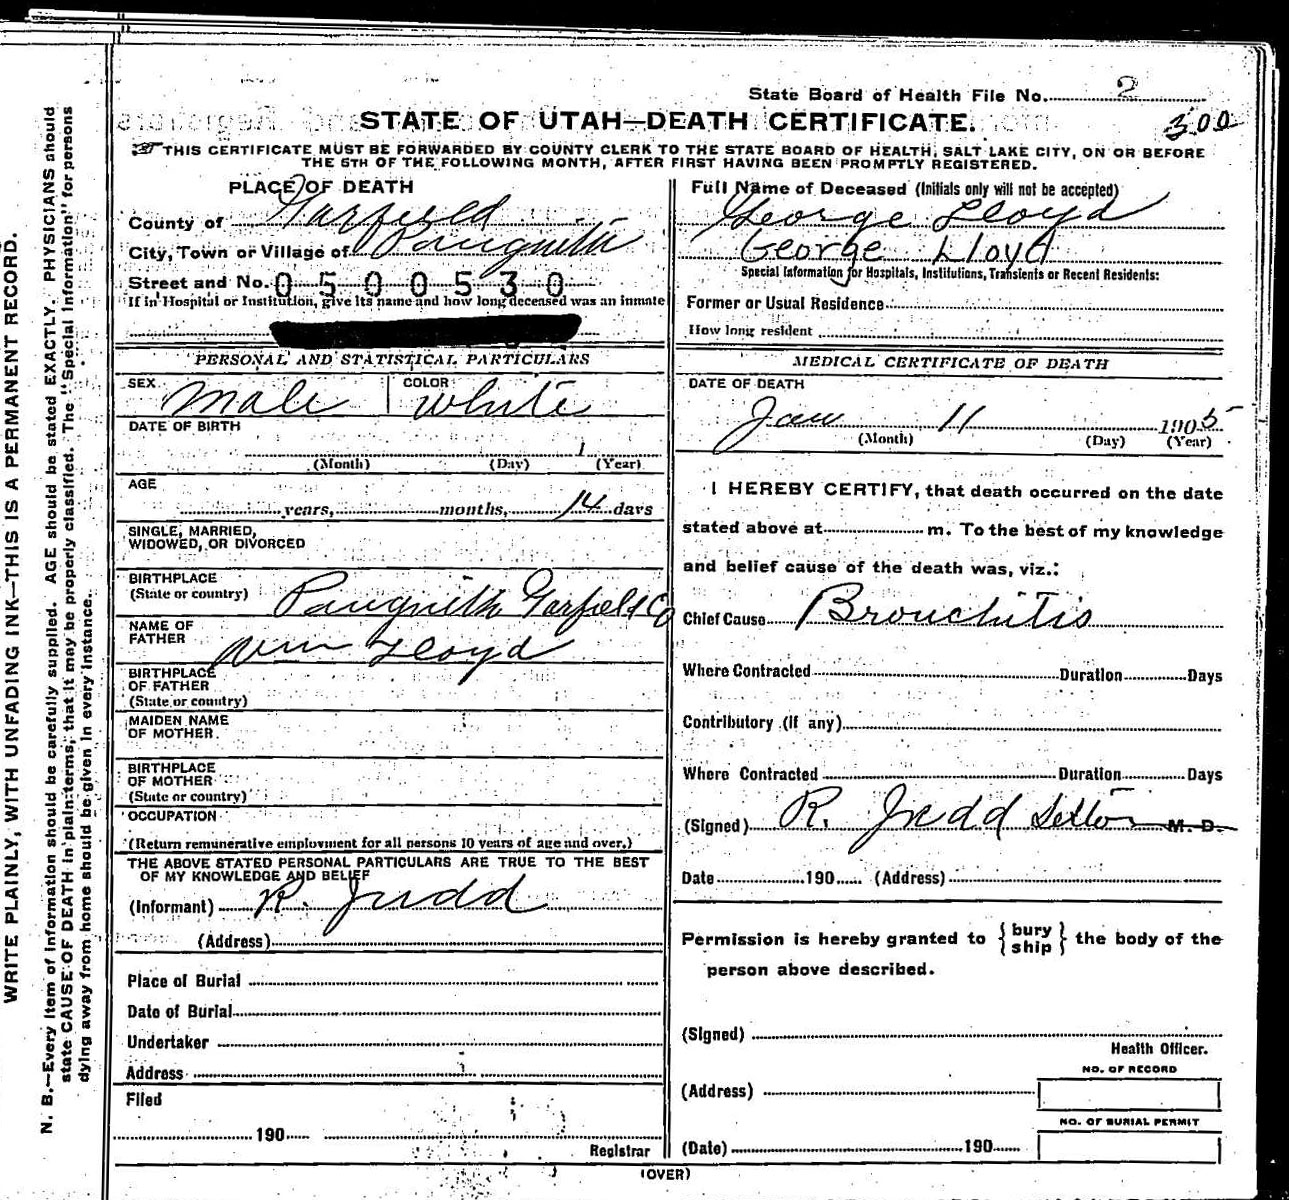 WRITE PLAINLY, WITH UNFADING INK—THIS IS A PERMANENT RECORD.
N. B.—Every item of information should be carefully supplied. AGE should be stated EXACTLY. PHYSICIANS should
state CAUSE OF DEATH in plain terms, that it may be properly classified. The "Special Information" for persons
dying away from home should be given in every instance.
State Board of Health File No. 2
STATE OF UTAH—DEATH CERTIFICATE.
300
THIS CERTIFICATE MUST BE FORWARDED BY COUNTY CLERK TO THE STATE BOARD OF HEALTH, SALT LAKE CITY, ON OR BEFORE
THE 5TH OF THE FOLLOWING MONTH, AFTER FIRST HAVING BEEN PROMPTLY REGISTERED.
PLACE OF DEATH
County of Garfield
City, Town or Village of Panguith
Street and No. 0500530
If in Hospital or Institution, give its name and how long deceased was an inmate
PERSONAL AND STATISTICAL PARTICULARS
SEX Male COLOR White
DATE OF BIRTH
1
(Month) (Day) (Year)
AGE
years, months, 14 days
SINGLE, MARRIED,
WIDOWED, OR DIVORCED
BIRTHPLACE
(State or country) Panguith Garfield Co
NAME OF
FATHER Wm Lloyd
BIRTHPLACE
OF FATHER
(State or country)
MAIDEN NAME
OF MOTHER
BIRTHPLACE
OF MOTHER
(State or country)
OCCUPATION
(Return remunerative employment for all persons 10 years of age and over.)
THE ABOVE STATED PERSONAL PARTICULARS ARE TRUE TO THE BEST
OF MY KNOWLEDGE AND BELIEF
(Informant) R. Judd
(Address)
Place of Burial
Date of Burial
Undertaker
Address
Filed
190
Registrar
Full Name of Deceased (Initials only will not be accepted)
George Lloyd
George Lloyd
Special Information for Hospitals, Institutions, Transients or Recent Residents:
Former or Usual Residence
How long resident
MEDICAL CERTIFICATE OF DEATH
DATE OF DEATH
Jan 11 1905
(Month) (Day) (Year)
I HEREBY CERTIFY, that death occurred on the date
stated above at m. To the best of my knowledge
and belief cause of the death was, viz.:
Chief Cause Bronchitis
Where Contracted Duration Days
Contributory (if any)
Where Contracted Duration Days
(Signed) R. Judd M. D.
Date 190 (Address)
Permission is hereby granted to { bury
ship } the body of the
person above described.
(Signed)
Health Officer.
NO. OF RECORD
(Address)
NO. OF BURIAL PERMIT
(Date) 190
(OVER)